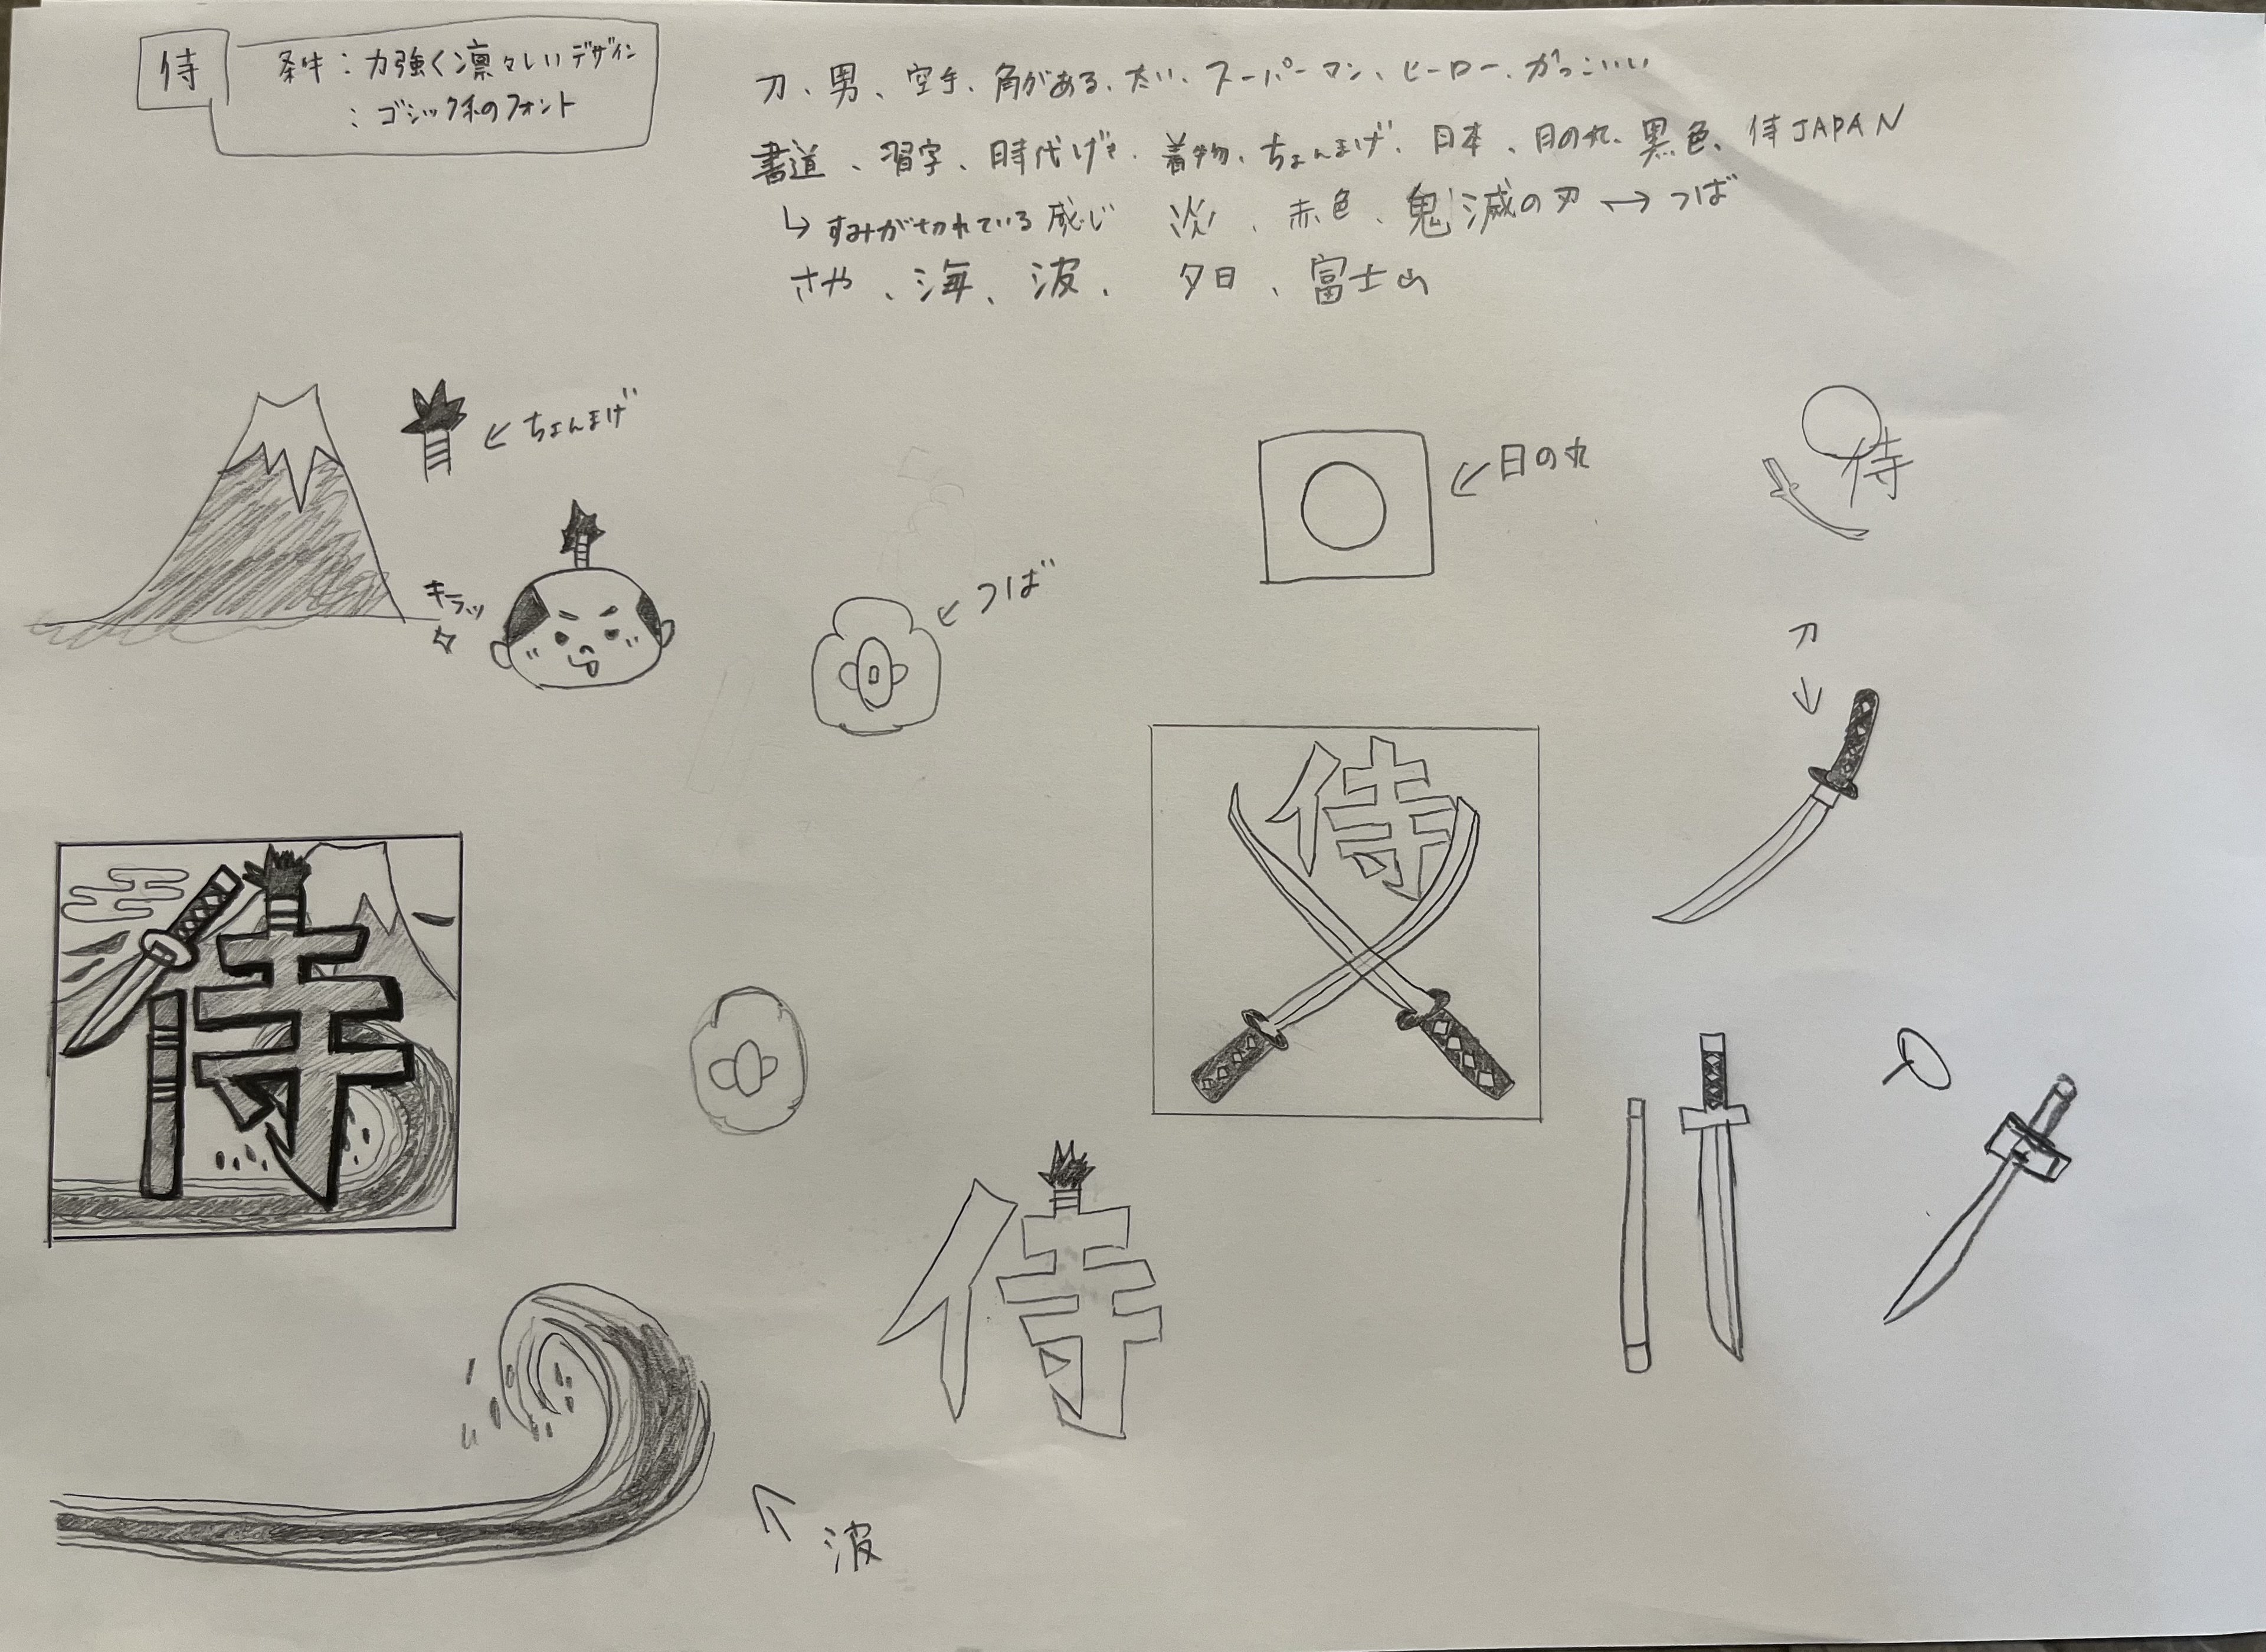 侍
条件：力強く凛々しいデザイン
：ゴシック系のフォント
刀、男、空手、角がある、太い、スーパーマン、ヒーロー、かっこいい
書道、習字、時代げき、着物、ちょんまげ、日本、日の丸、黒色、侍JAPAN
↳すみが切れている感じ 炎、赤色、鬼滅の刃↔つば
さや、海、波、夕日、富士山
←ちょんまげ
←日の丸
侍
キラッ
←つば
刀
↓
侍
侍
侍
↖波